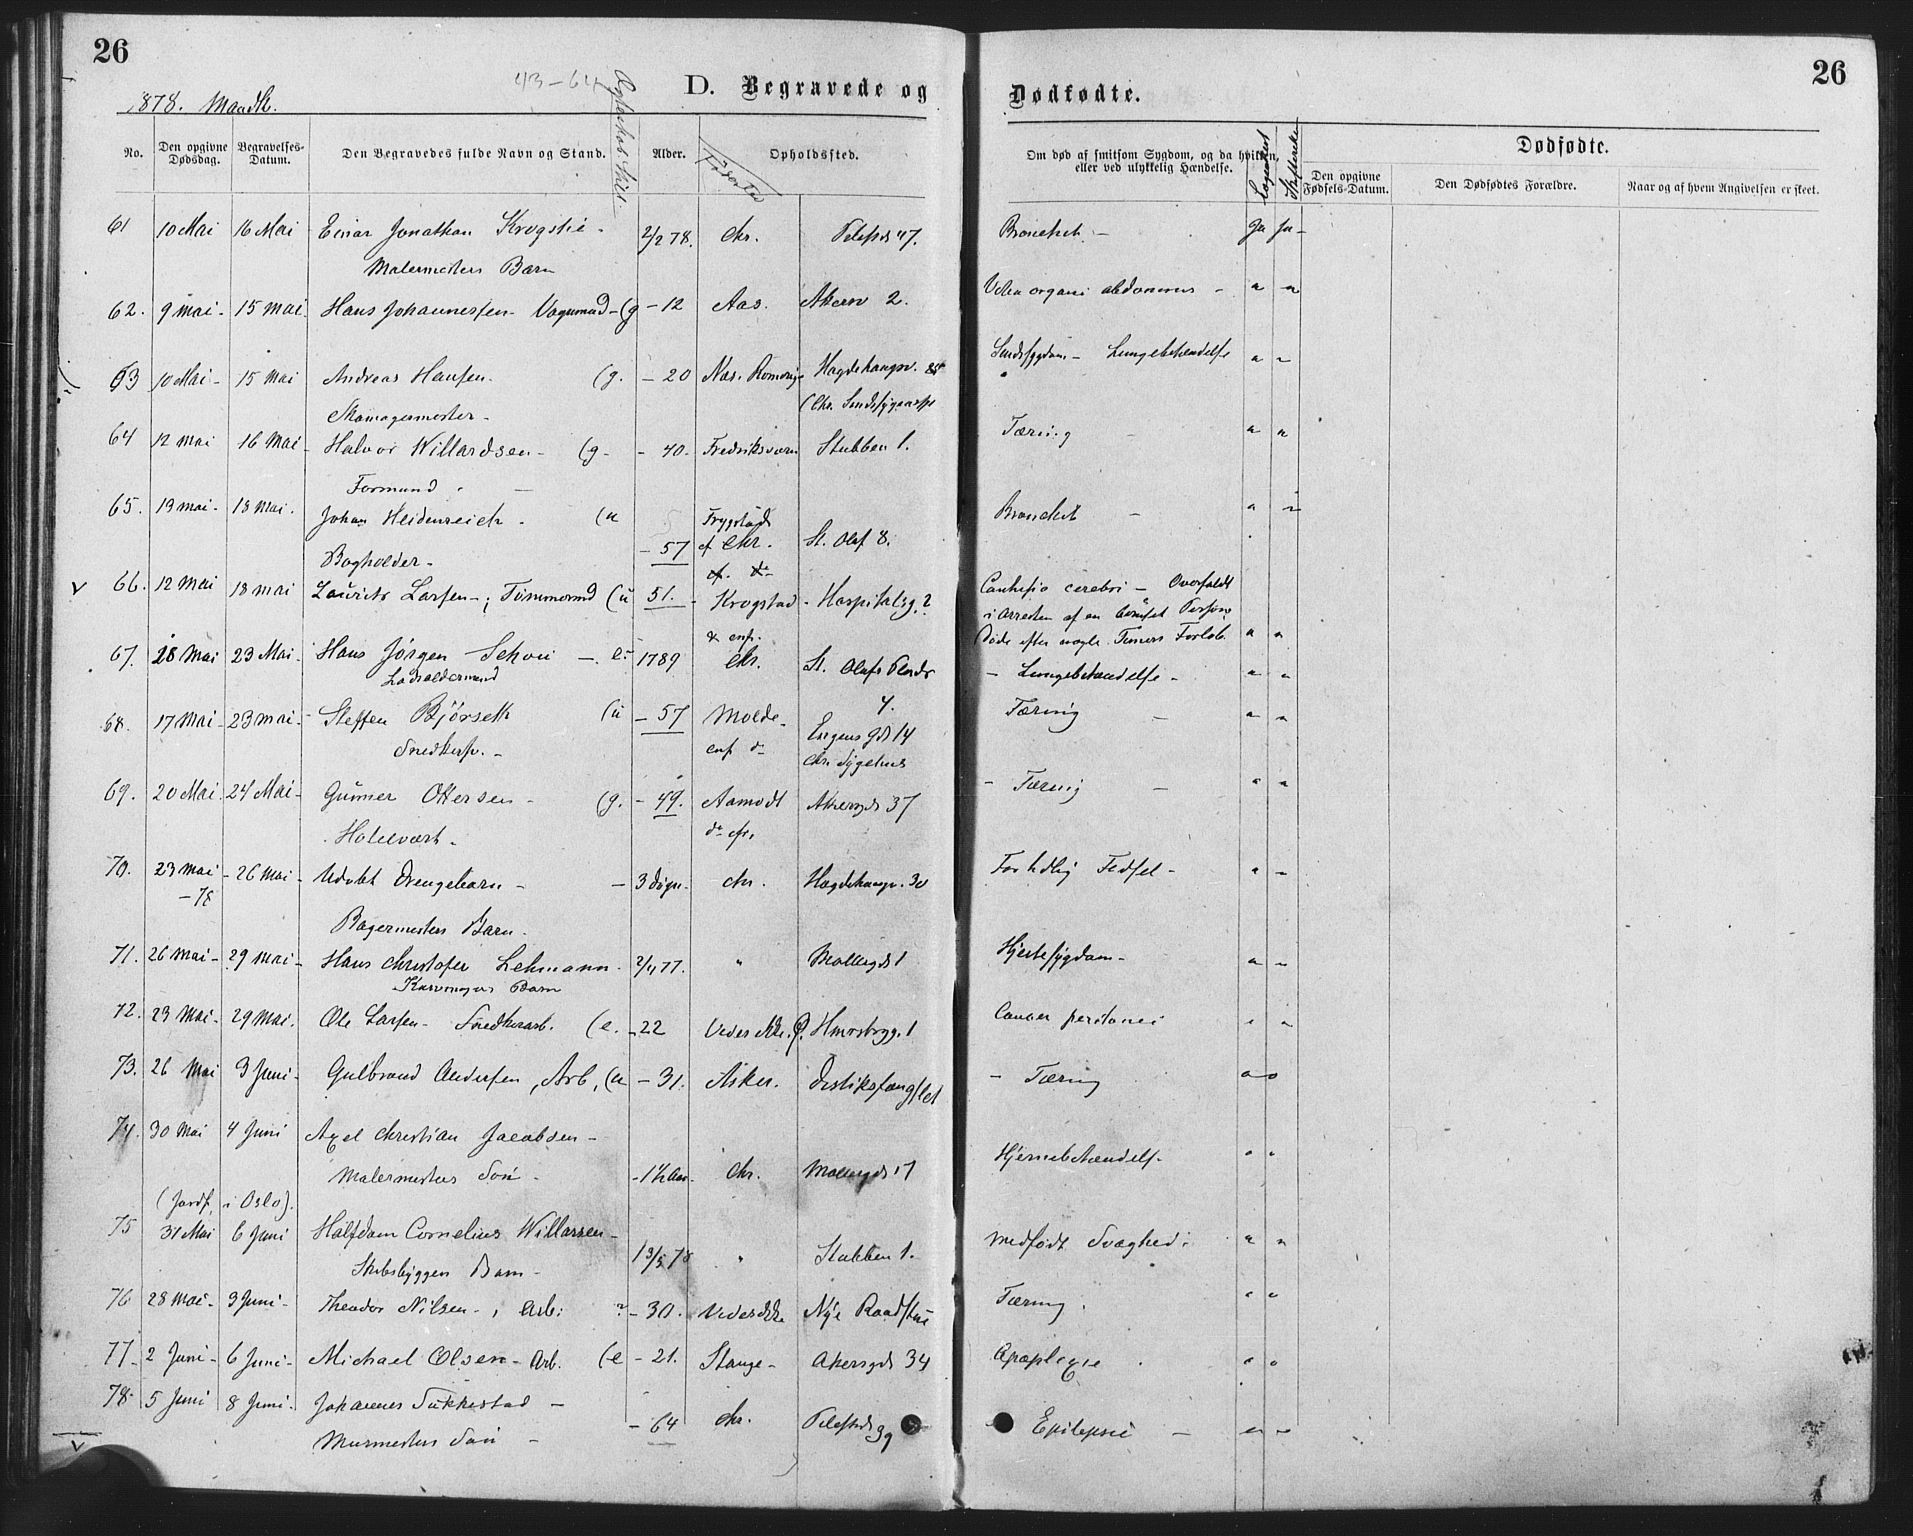 26
43-64
D. Begravede og
Dødfødte.
26
1878. Mandk.
No.
Den opgivne Dødsdag.
Begravelses-Datum.
Den Begravedes fulde Navn og Stand.
Ægteskab. Still.
Alder.
Fødested
Opholdssted.
Om død af smitsom Sygdom, og da hvilken, eller ved ulykkelig Hændelse.
Lægeattest
Skifteretten
Dødfødte.
Den opgivne Fødsels-Datum.
Den Dødfødtes Forældre.
Naar og af hvem Angivelsen er skeet.
61 10 Mai 16 Mai Einar Jonathan Krogstie - 2/2 78. Chr. Pilestrd 47. Bronchit - Ja Ja -
Malermesters Barn
62. 9 mai - 15 mai Hans Johannesen (g - 12 Aas. Akersv 2. organi abdominis - " "
63 10 Mai - 15 Mai Andreas Hansen. (g. - 20 Næs. Romerige Hægdehaugsv. Sindssygdom - Lungebetændelse " "
(Chr. Sindssygeasyl
64 12 mai 16 Mai - Halvor Willardsen - (g - - 40 - Fredriksværn Stubben 1. Tæring - " "
Formand -
65. 13 mai - 18 Mai. Johan Heidenreich - (u - 57 Chr. St. Olaf 8. Bronchit - " "
Bogholder -
V 66. 12 Mai 18 mai Laurits Larsen -; Tømmermd (u 51. Krogstad - Hospitalsg. 2 Contusio cerebri - Overfaldt
i Arresten af en Person
Døde efter nogle Timers Forløb. " "
67. 28 Mai 23 Mai - Hans Jørgen Schou - e: 1789 Chr. St. Olafs Plads 4. - Lungebetændelse - " "
Ladsoldermand
68. 17 Mai - 23 mai - Steffen Bjørseth (u - 57 Molde - 14 Tæring - " "
Snedkersv. - Chr. Sygehus
69. 20 Mai 24 Mai - Gunner Ottersen - (g. - 49. Aamodt Akersgd 37 - Tæring - " "
Hotelvært -
70. 23 mai - 78 - 26 Mai - Udøbt Drengebarn - - 3 døgn - Chr. Hægdehaugv. 30 For tidlig Fødsel - " "
Bagermesters Barn -
71. 26 mai - 29 mai - Hans Christofer Lehmann - 2/4 77. " Møllergd 1 Hjertesygdom - " "
Kurvmagers Barn
72. 23 Mai - 29 Mai. Ole Larsen - Snedkerarb. (e. - 22 Vides ikke. 1 Cancer peritonei " "
73. 26 Mai 3 Juni - Gulbrand Andersen, Arb, (u - 31. Asker. Distriktsfængslet - Tæring " "
74. 30 Mai 4 Juni Axel Christian Jacobsen -
Malermesters Søn - - 1½ Aar Chr. Møllergd 17 Hjernebetændelse " "
(Jordf. i Oslo).
75 31 Mai 6 Juni Halfdan Cornelius Willarsen - 13/5 78 " Stubben 1. medfødt Svaghed: " "
Skibsbyggers Barn -
76 28 Mai - 3 Juni - Theodor Nilsen -, Arb: ? - 30. Vides ikke Nye Raadstue Tæring. " "
77. 2 Juni - 6 Juni - Michael Olsen - Arb. (e - 21. Stange - Akersgd 34 Apoplexie " "
78. 5 Juni 8 Juni - Johannes Sukkestad - - 64 Chr. Pilestrd 39 Epilepsie - " "
V Murmesters Søn -